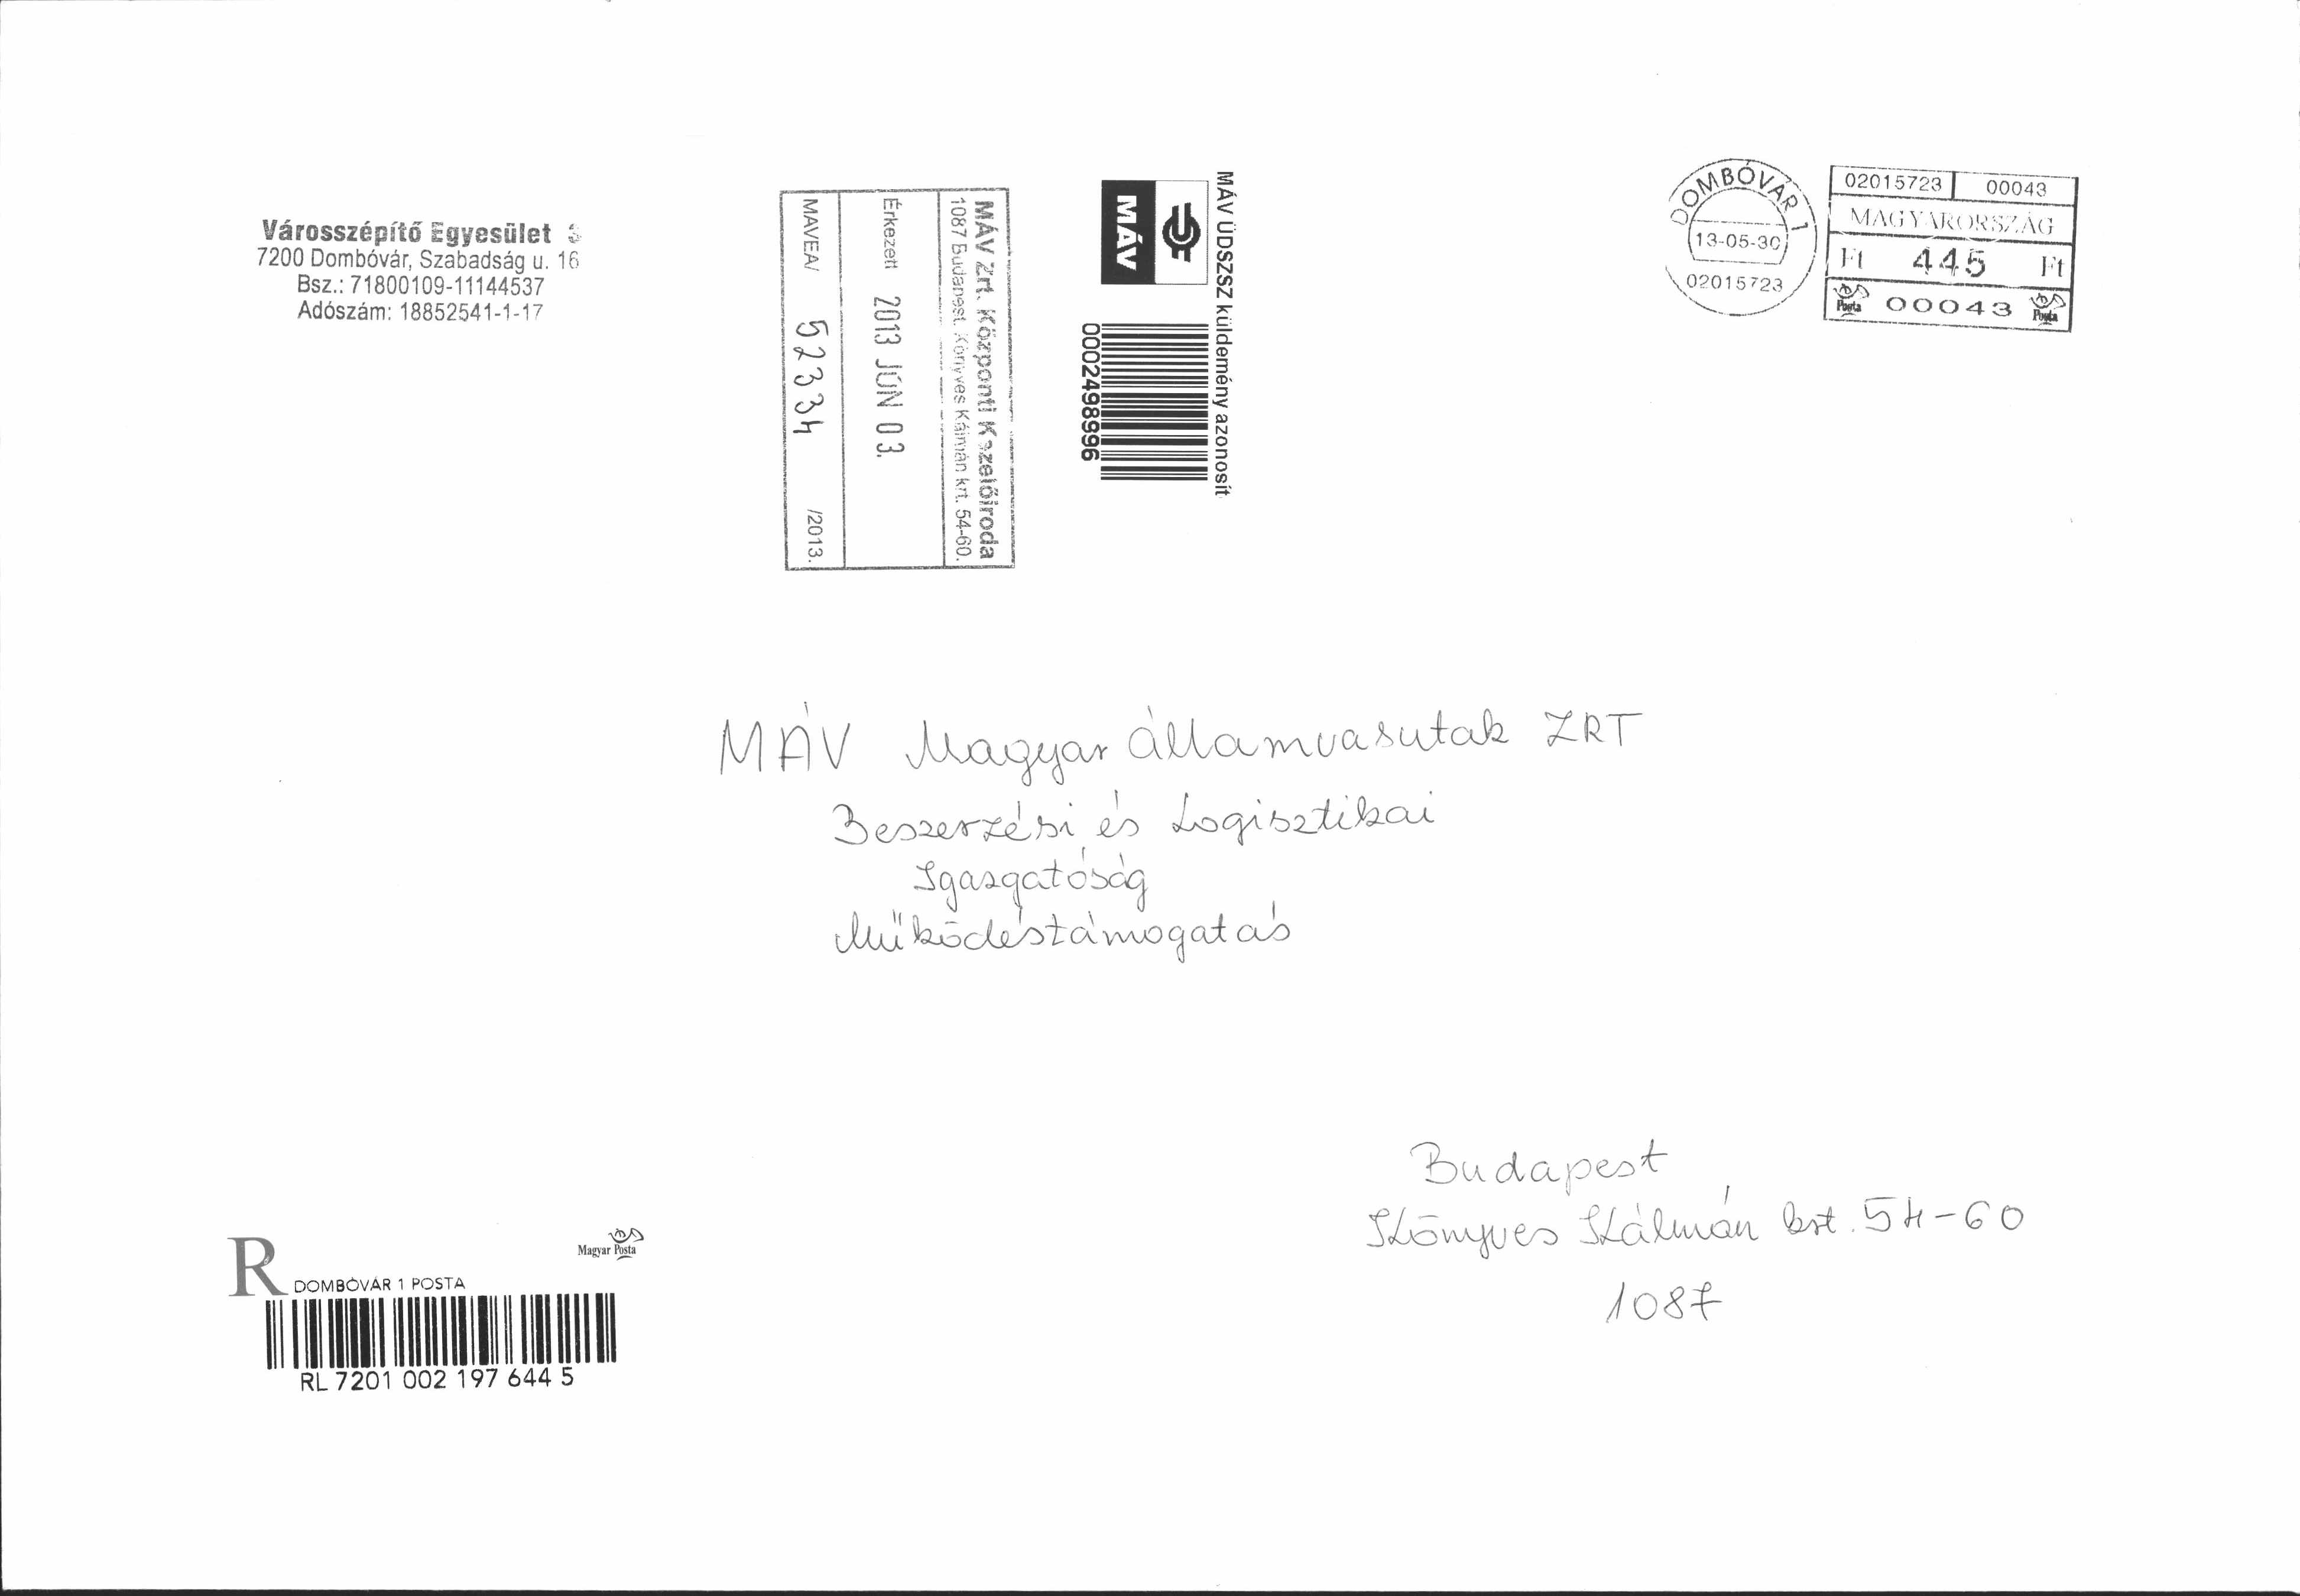 Városszépítő Egyesület
7200 Dombóvár, Szabadság u. 16
Bsz.: 71800109-11144537
Adószám: 18852541-1-17
MÁV Zrt. Központi Kezelőiroda
1087 Budapest, Könyves Kálmán krt. 54-60.
Érkezett 2013 JÚN 03.
MAVEA/ 52334 /2013.
MÁV ÜDSZSZ küldemény azonosít
MÁV
0002498996
DOMBÓVÁR 1
13-05-30
02015723
02015723 00043
MAGYARORSZÁG
Ft 445 Ft
Posta 00043 Posta
MÁV Magyar Államvasutak ZRT
Beszerzési és Logisztikai
Igazgatóság
Működéstámogatás
Budapest
Könyves Kálmán krt. 54-60
1087
R
Magyar Posta
DOMBÓVÁR 1 POSTA
RL 7201 002 197 644 5